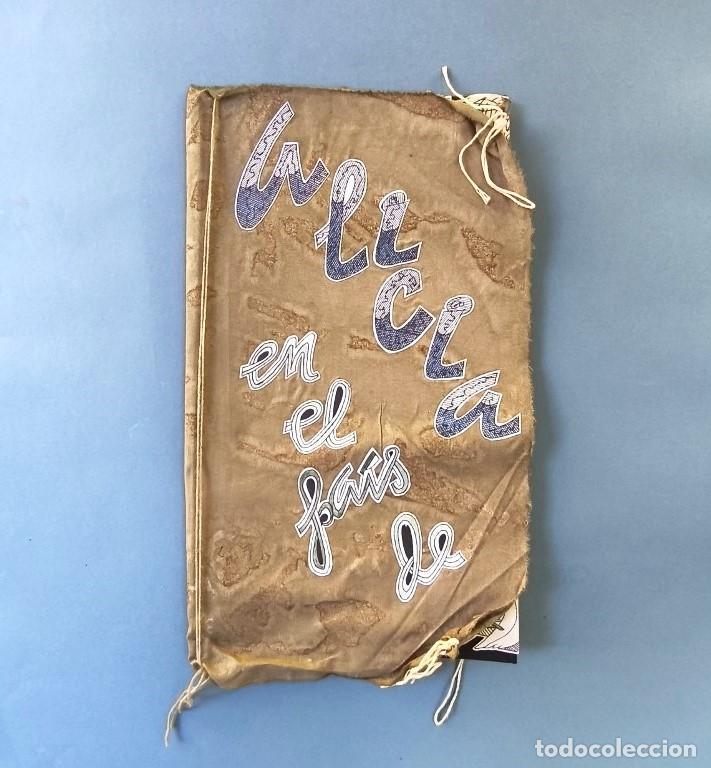 Alicia
en
el
país
de
todocoleccion